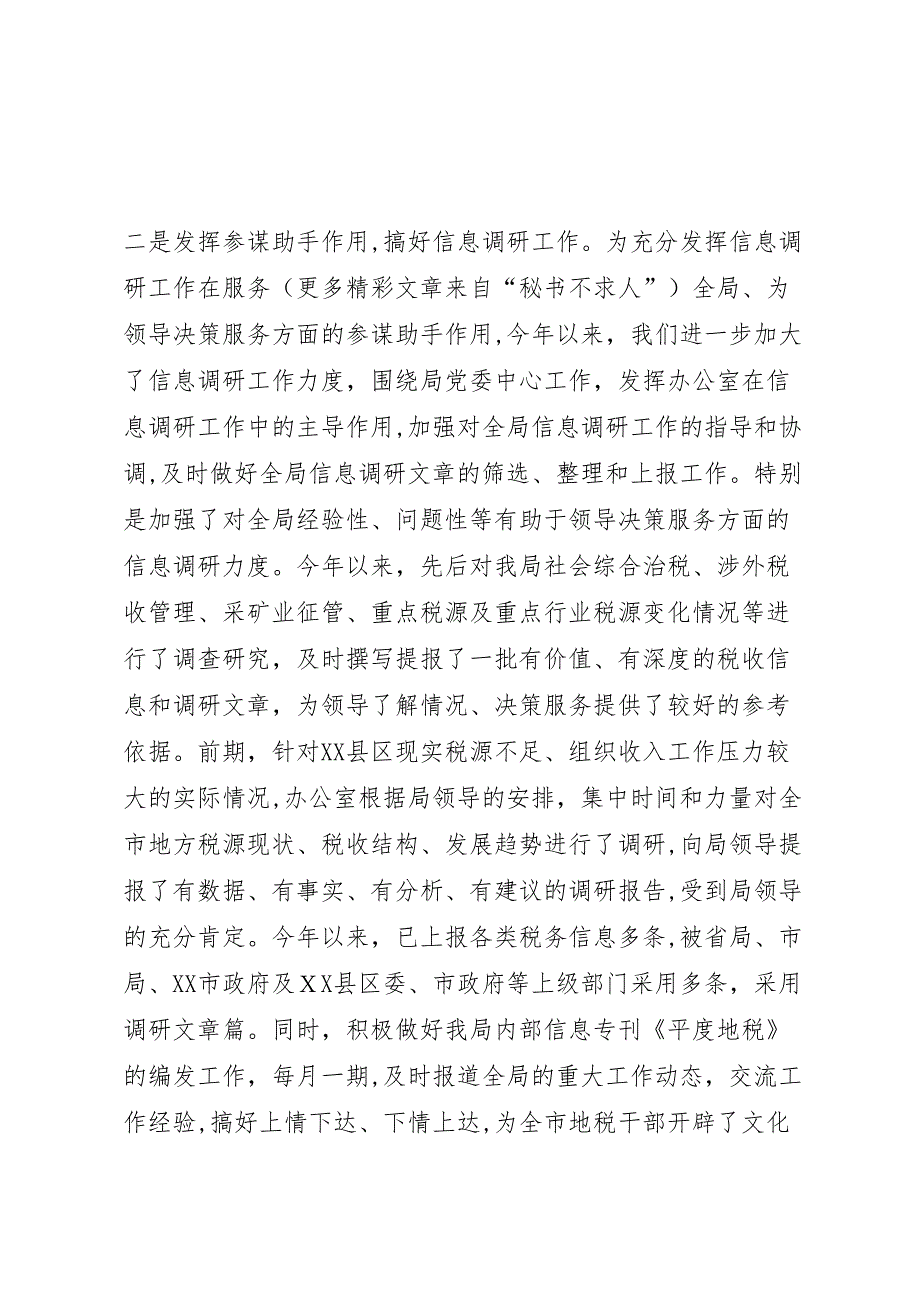 二是发挥参谋助手作用,搞好信息调研工作。为充分发挥信息调
研工作在服务（更多精彩文章来自“秘书不求人”）全局、为
领导决策服务方面的参谋助手作用,今年以来，我们进一步加大
了信息调研工作力度，围绕局党委中心工作，发挥办公室在信
息调研工作中的主导作用,加强对全局信息调研工作的指导和协
调,及时做好全局信息调研文章的筛选、整理和上报工作。特别
是加强了对全局经验性、问题性等有助于领导决策服务方面的
信息调研力度。今年以来，先后对我局社会综合治税、涉外税
收管理、采矿业征管、重点税源及重点行业税源变化情况等进
行了调查研究，及时撰写提报了一批有价值、有深度的税收信
息和调研文章，为领导了解情况、决策服务提供了较好的参考
依据。前期，针对XX县区现实税源不足、组织收入工作压力较
大的实际情况,办公室根据局领导的安排，集中时间和力量对全
市地方税源现状、税收结构、发展趋势进行了调研,向局领导提
报了有数据、有事实、有分析、有建议的调研报告,受到局领导
的充分肯定。今年以来，已上报各类税务信息多条,被省局、市
局、XX市政府及XX县区委、市政府等上级部门采用多条，采用
调研文章篇。同时，积极做好我局内部信息专刊《平度地税》
的编发工作，每月一期,及时报道全局的重大工作动态，交流工
作经验,搞好上情下达、下情上达,为全市地税干部开辟了文化